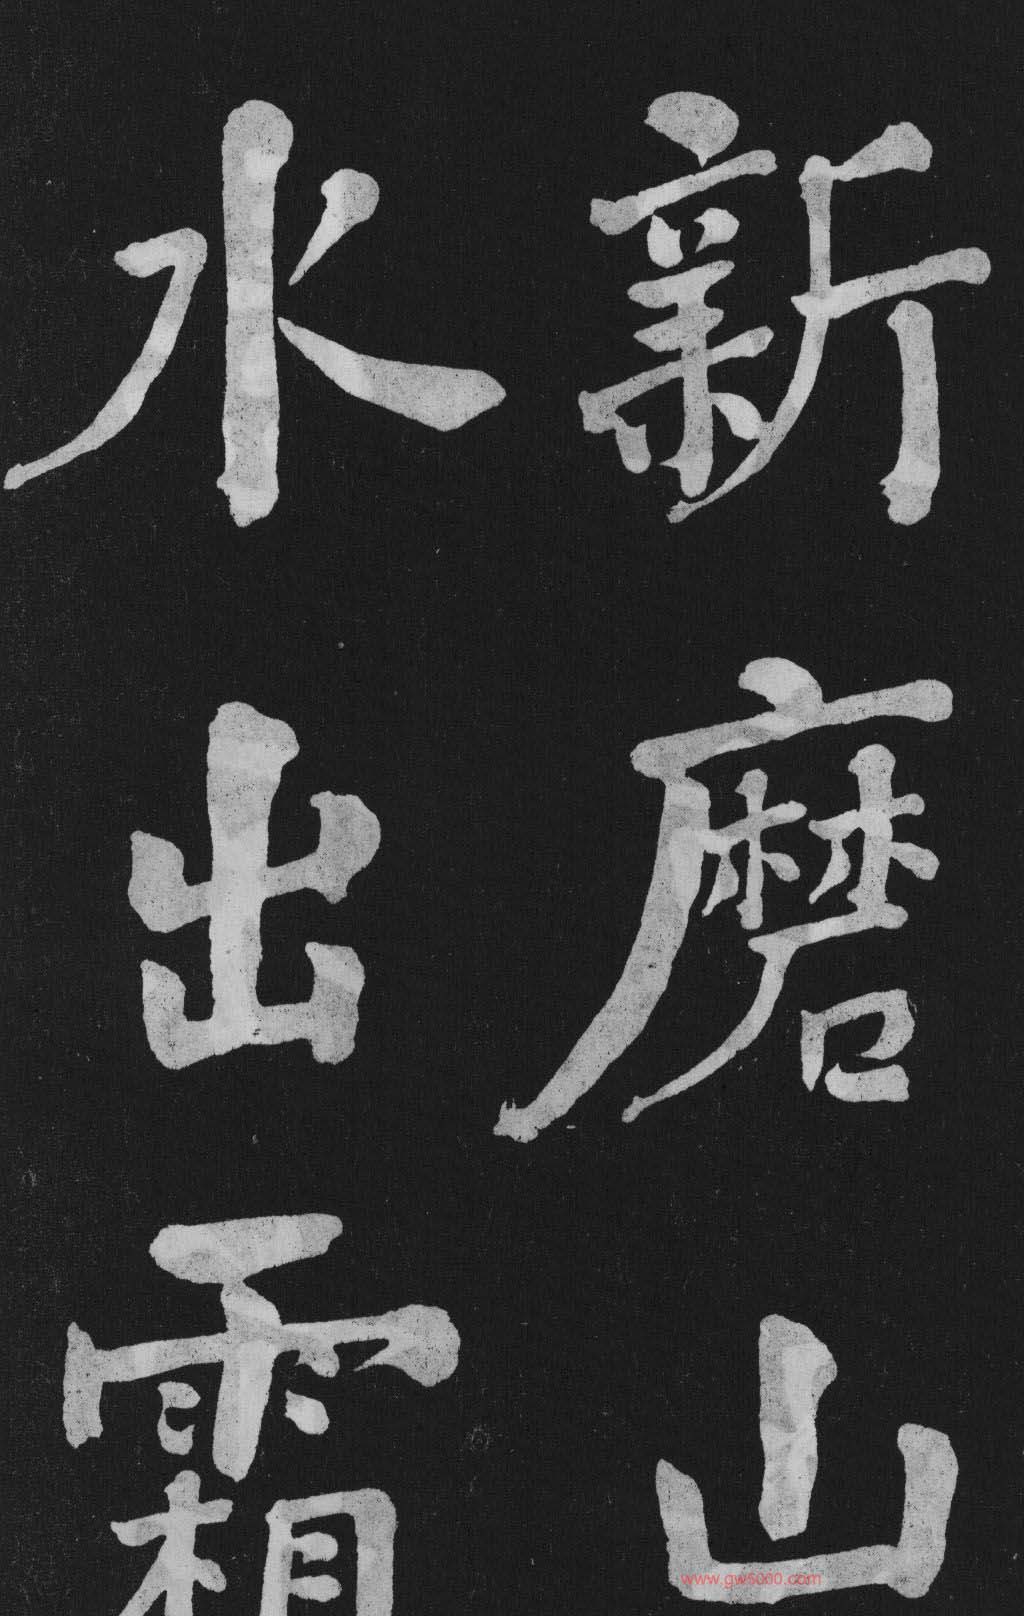 新磨山
水出霜
www.gw5000.com